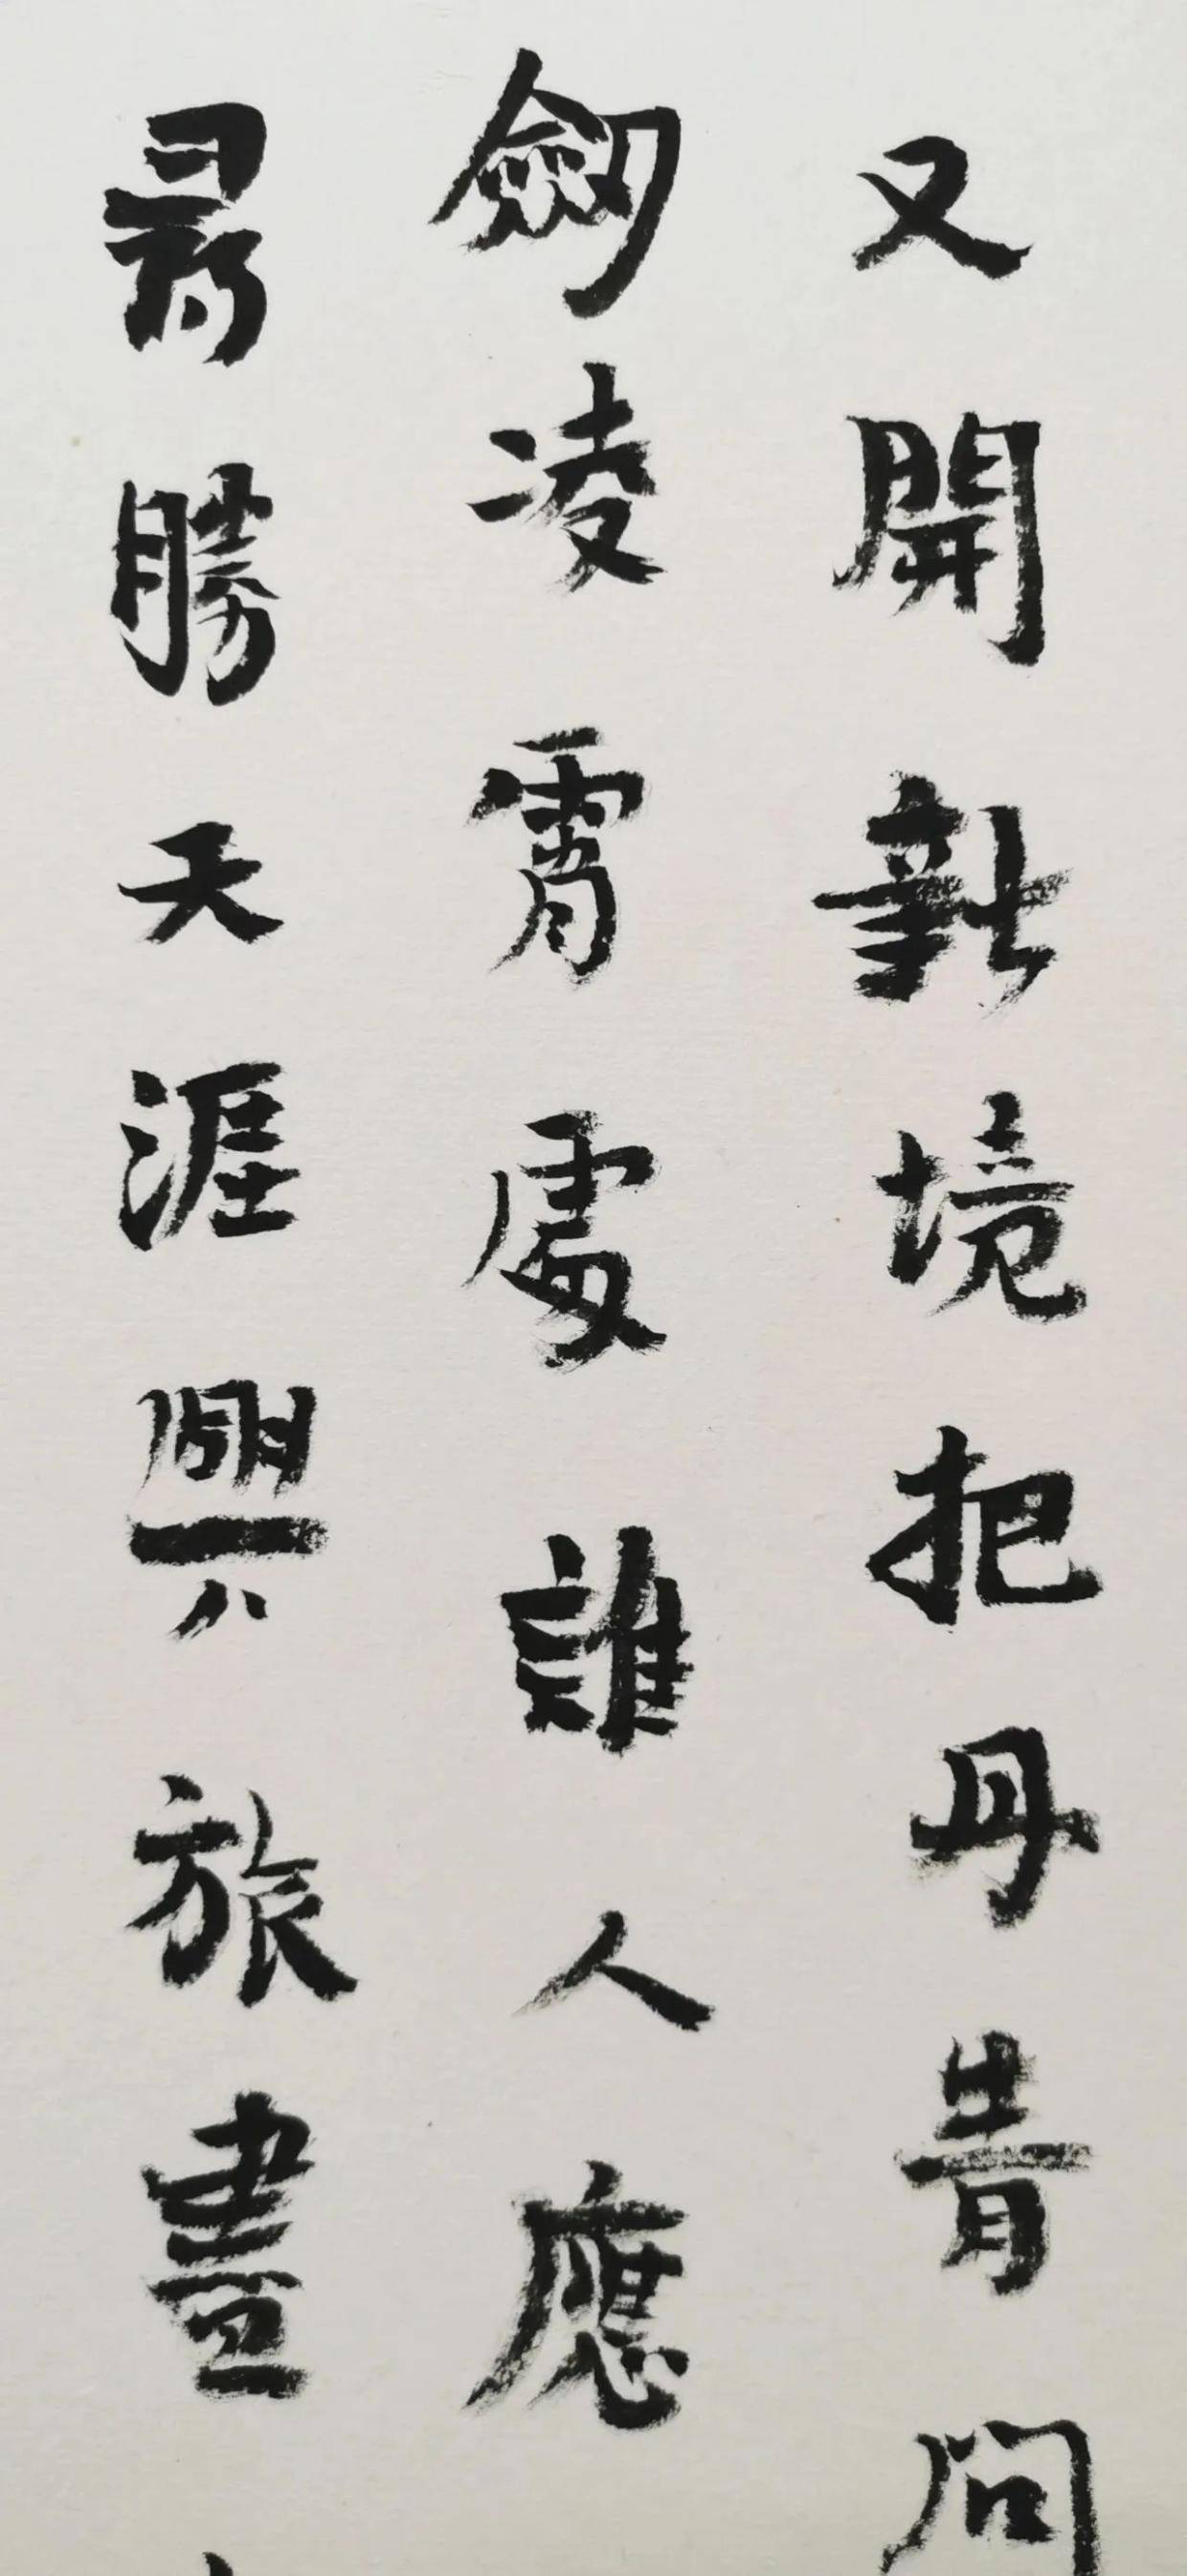 又開新境把丹青問
劒凌霄處誰人應
尋勝天涯興旅畫